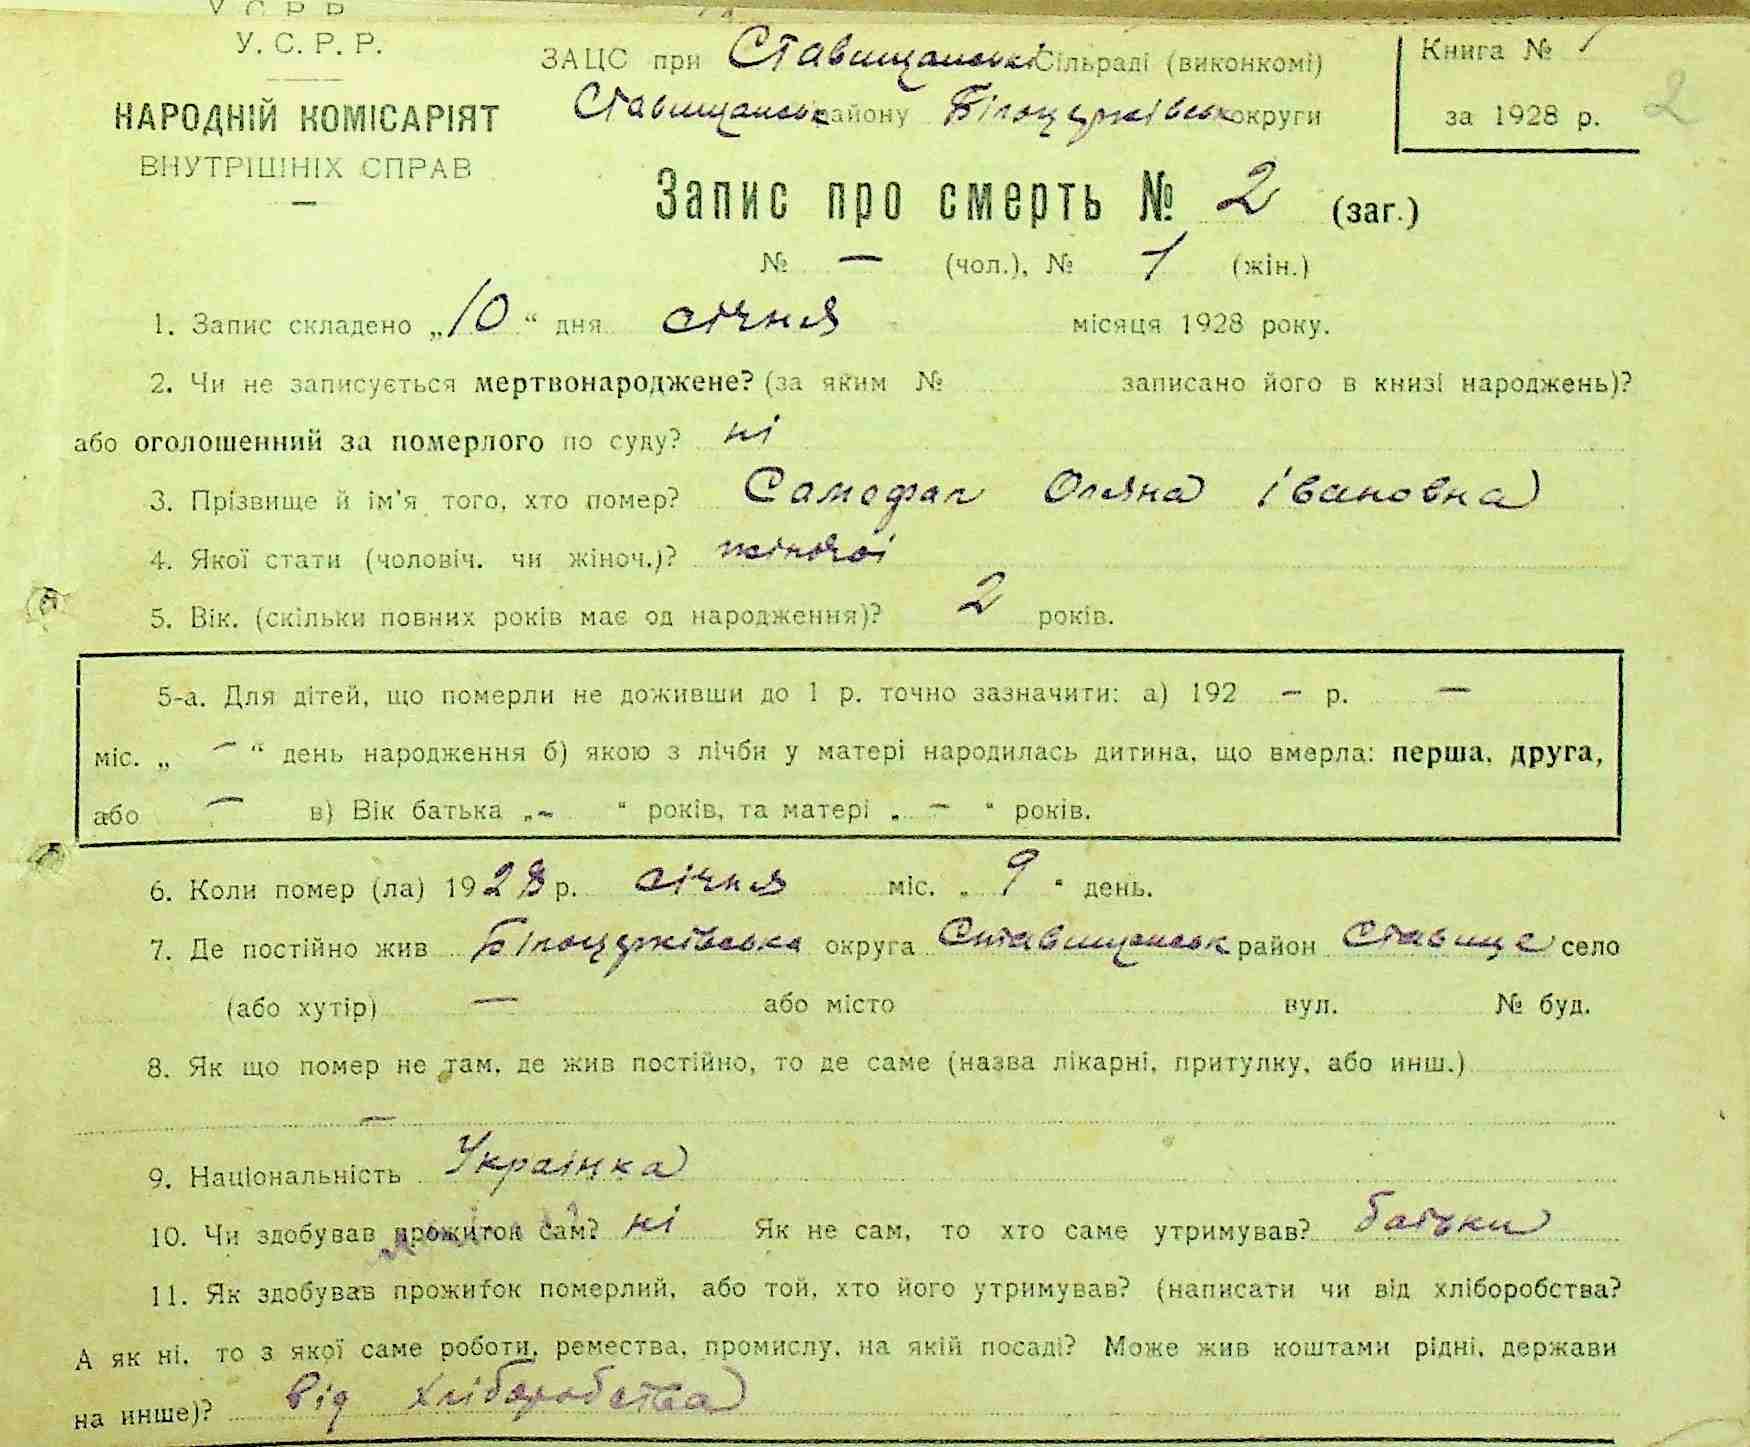 У. С. Р. Р.
НАРОДНІЙ КОМІСАРІЯТ
ВНУТРІШНІХ СПРАВ
ЗАЦС при Ставищанські Сільраді (виконкомі)
Ставищанськ району Білоцерківськ округи
Книга № 1
за 1928 р.
2
Запис про смерть № 2 (заг.)
№ — (чол.), № 1 (жін.)
1. Запис складено „10“ дня січня місяця 1928 року.
2. Чи не записується мертвонароджене? (за яким № записано його в книзі народжень)?
або оголошенний за померлого по суду? ні
3. Прізвище й ім'я того, хто помер? Самофал Оляна Івановна
4. Якої стати (чоловіч. чи жіноч.)? жіночоі
5. Вік. (скільки повних років має од народження)? 2 років.
5-а. Для дітей, що померли не доживши до 1 р. точно зазначити: а) 192 — р. —
міс. „ — “ день народження б) якою з лічби у матері народилась дитина, що вмерла: перша, друга,
або — в) Вік батька „ — “ років, та матері „ — “ років.
6. Коли помер (ла) 1928 р. січня міс. „ 9 “ день.
7. Де постійно жив Білоцерківська округа Ставищанськ район Ставище село
(або хутір) — або місто вул. № буд.
8. Як що помер не там, де жив постійно, то де саме (назва лікарні, притулку, або инш.)
—
9. Національність Украінка
10. Чи здобував прожиток сам? ні Як не сам, то хто саме утримував? батьки
11. Як здобував прожиток померлий, або той, хто його утримував? (написати чи від хліборобства?
А як ні, то з якої саме роботи, ремества, промислу, на якій посаді? Може жив коштами рідні, держави
на инше)? Від хліборобства